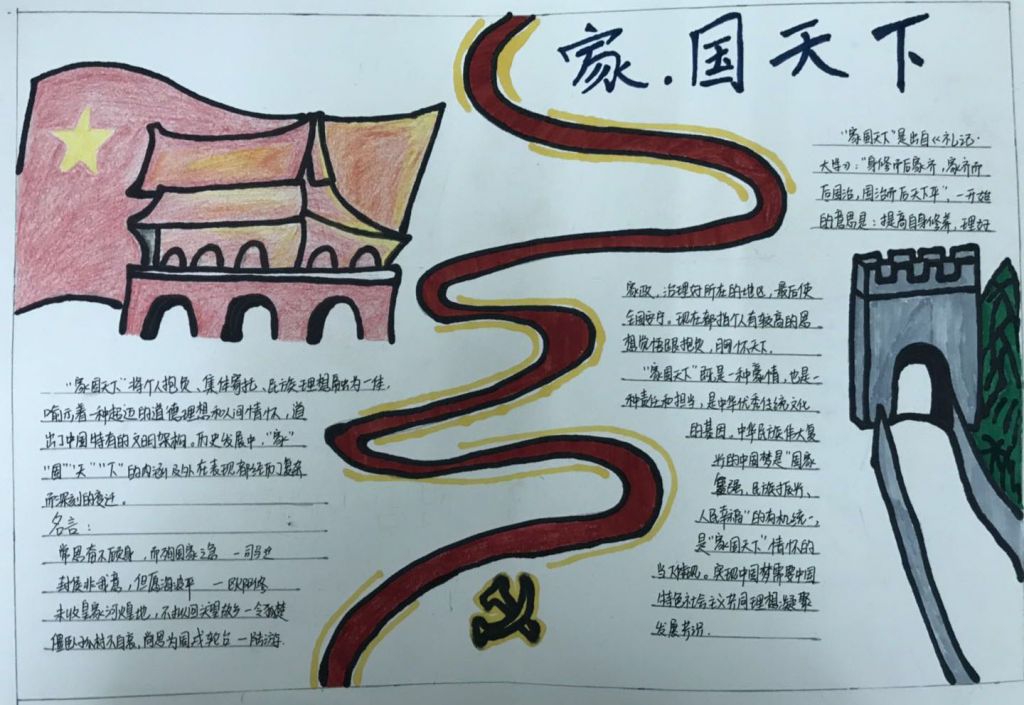 家.国天下
"家国天下"是出自《礼记·
大学》:"身修而后家齐,家齐而
后国治,国治而后天下平",一开始
的意思是:提高自身修养,理好
家政,治理好所在的地区,最后使
全国安宁。现在都指个人有较高的思
想觉悟跟抱负,胸怀天下.
"家国天下"既是一种豪情,也是一
种责任和担当,是中华优秀传统文化
的基因。中华民族伟大复
兴的中国梦是"国家
富强、民族振兴、
人民幸福"的有机统一,
是"家国天下"情怀的
当下体现。实现中国梦需要中国
特色社会主义共同理想凝聚
发展共识.
"家国天下"将个人抱负、集体寄托、民族理想融为一体,
响示着一种超迈的道德理想和人间情怀,道
出了中国特有的文明架构。历史发展中,"家"
"国""天""下"的内涵及外在表现都经历复杂
而深刻的变迁。
名言:
常思奋不顾身,而殉国家之急 一司马迁
封侯非我意,但愿海波平 一
未收皇家河湟地,不拟回头望故乡一令狐楚
僵卧孤村不自哀,尚思为国戍轮台一陆游.